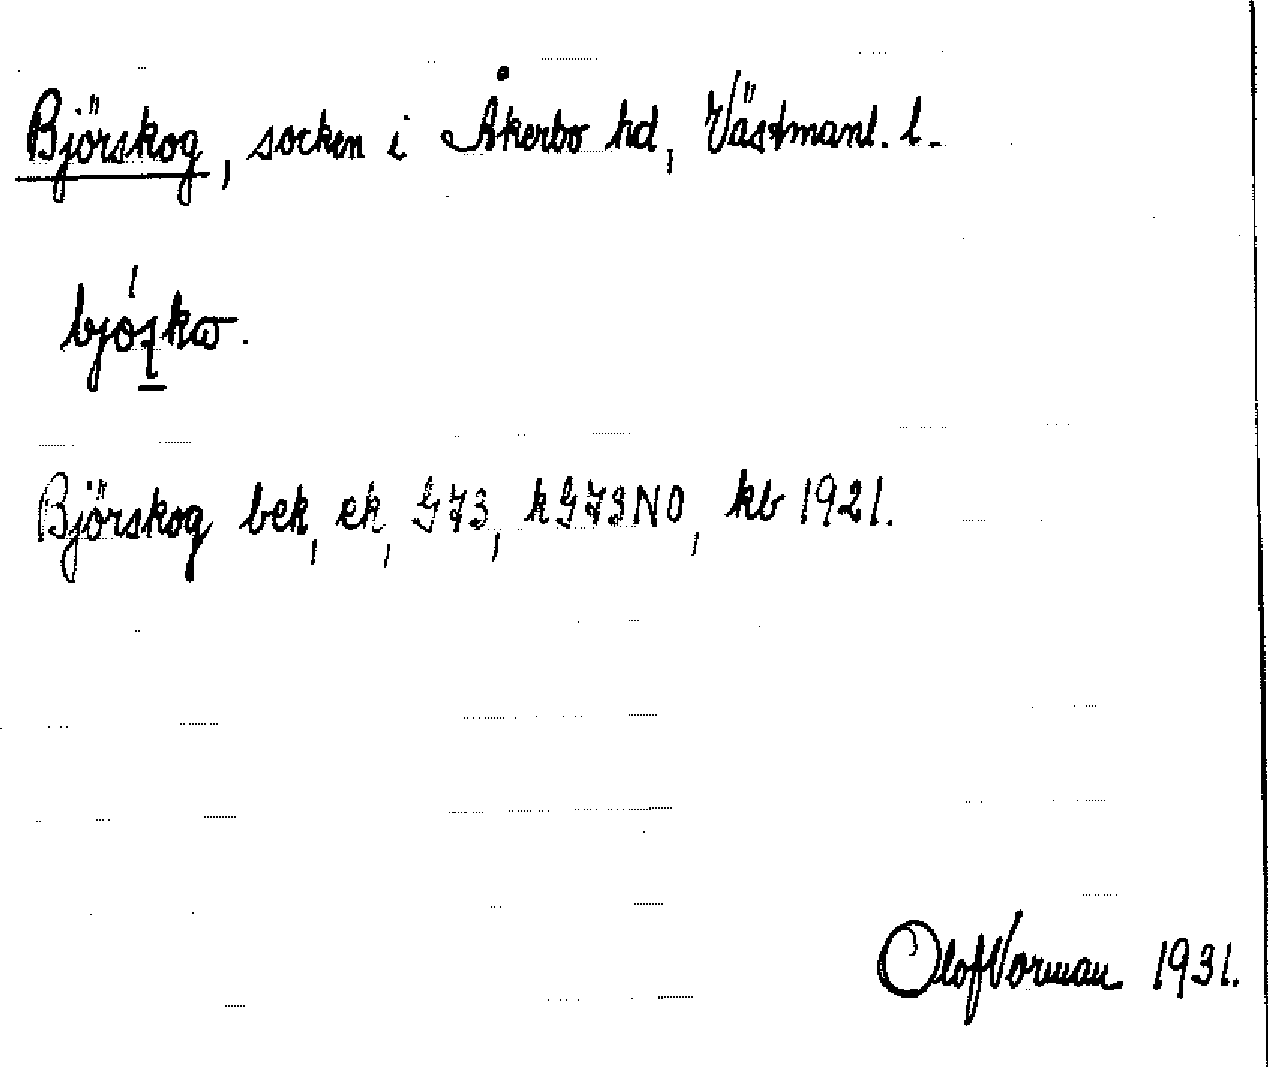 Björskog, socken i Åkerbo hd, Västmanl. l.
Björskog bek, ek, G73, kG73NO, kb 1921.
Olof Vorman 1931.